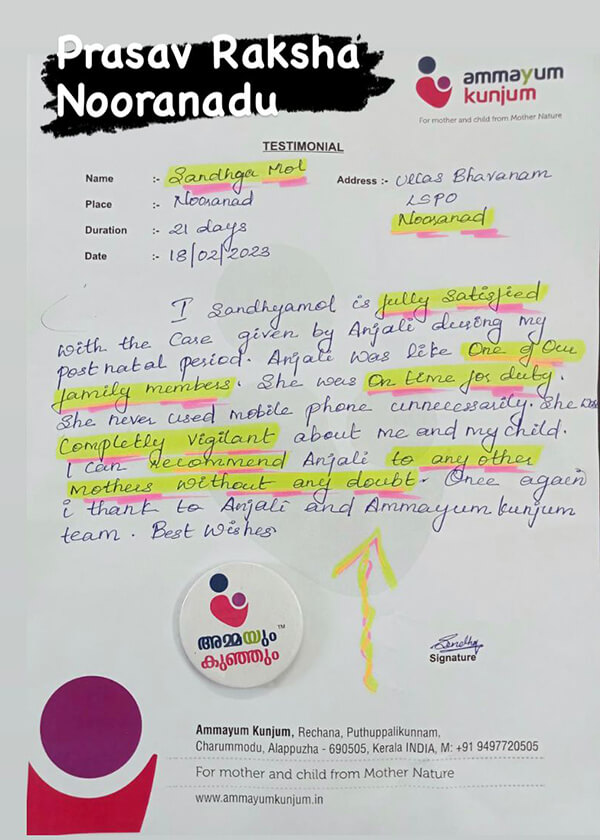 Prasav Raksha
Nooranadu
ammayum
kunjum
For mother and child from Mother Nature
TESTIMONIAL
Name :- Sandhya Mol
Address :- Ullas Bhavanam
Place :- Nooranad
LSPO
Duration :- 21 days
Nooranad
Date :- 18/02/2023
I Sandhyamol is fully satisfied
with the Care given by Anjali during my
post natal period. Anjali was like One of Our
family members. She was On time for duty.
She never used mobile phone unnecessarily. She was
Completly vigilant about me and my child.
I can Recommend Anjali to any other
mothers without any doubt. Once again
i thank to Anjali and Ammayum kunjum
team. Best Wishes.
അമ്മയും TM
കുഞ്ഞും
Sandhya
Signature
Ammayum Kunjum, Rechana, Puthuppalikunnam,
Charummodu, Alappuzha - 690505, Kerala INDIA, M: +91 9497720505
For mother and child from Mother Nature
www.ammayumkunjum.in